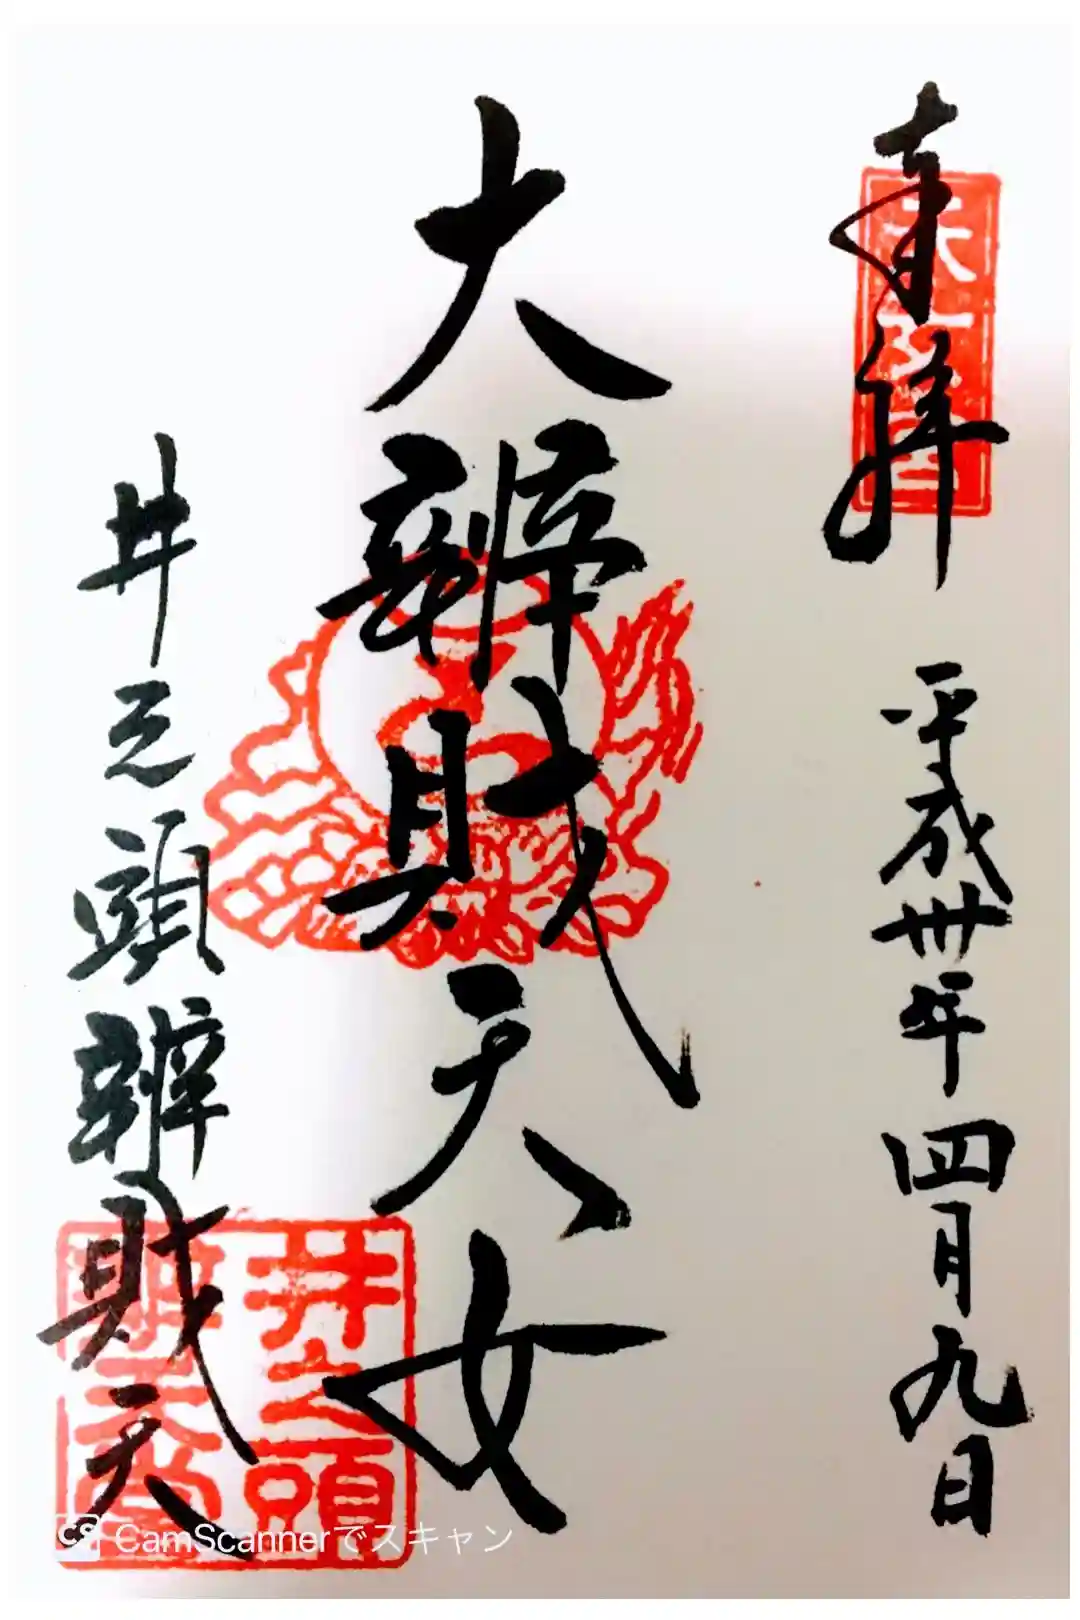 奉拝
平成卅年四月九日
大辨財天女
井之頭辨財天
井之頭
辨天堂
CS CamScannerでスキャン